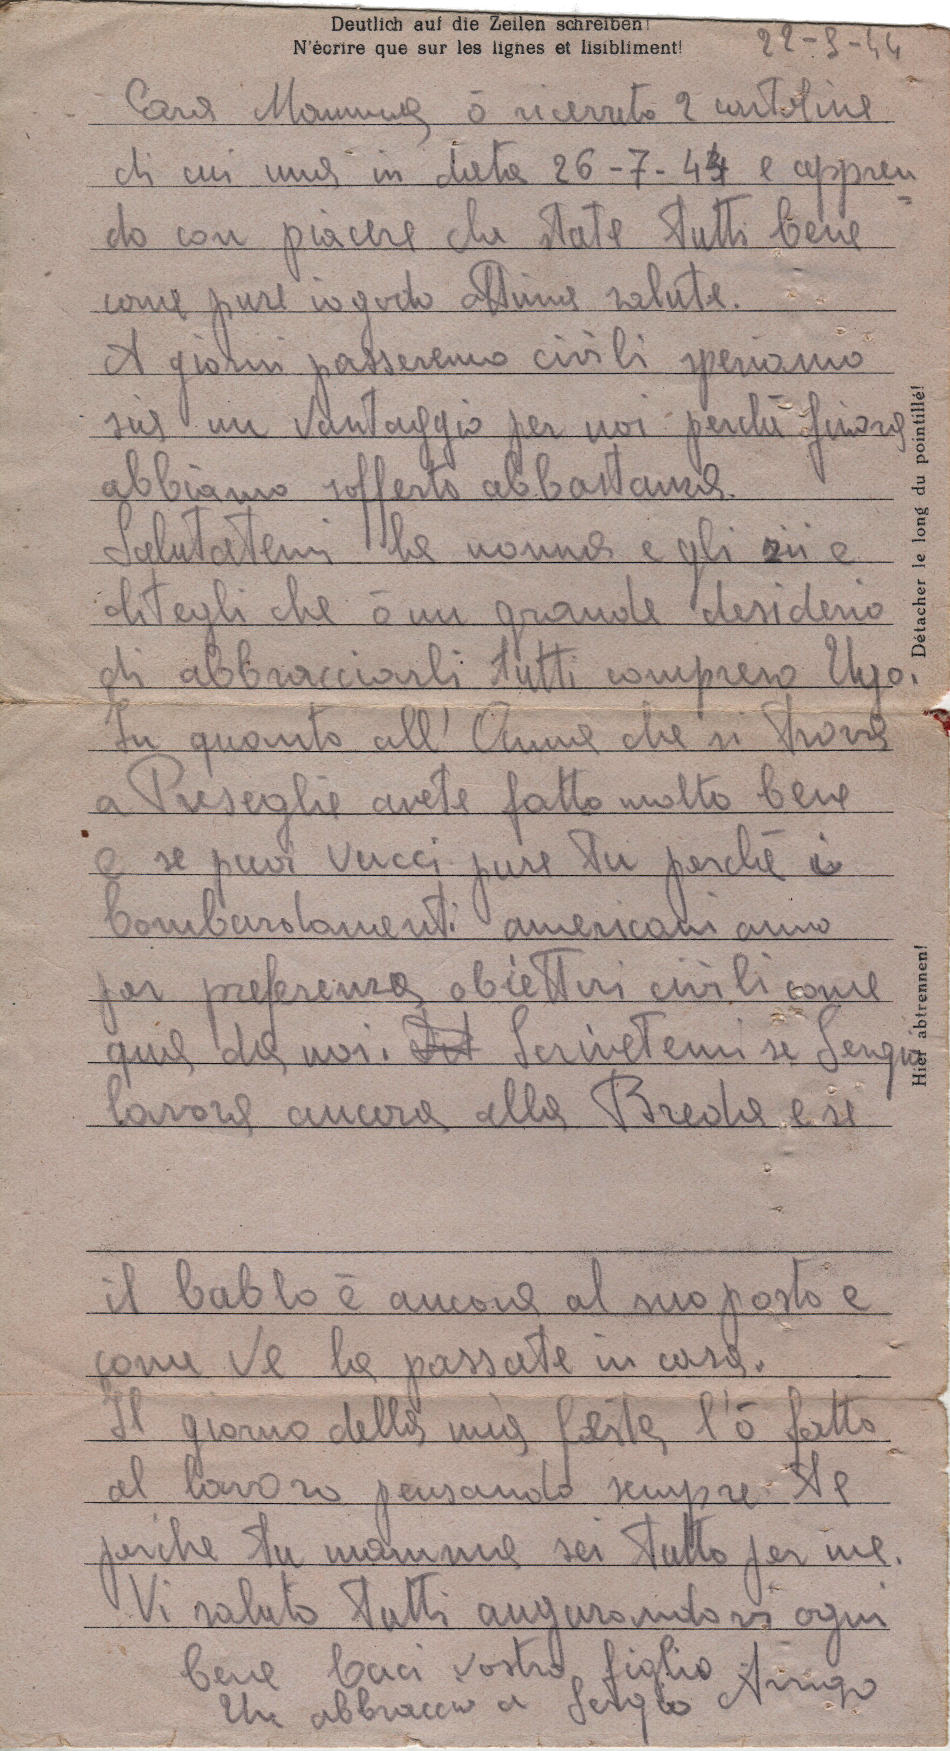 Deutlich auf die Zeilen schreiben!
N'écrire que sur les lignes et lisibliment!
22-9-44
Cara Mamma, ò ricevuto 2 cartoline
di cui una in data 26-7-44 e appren
do con piacere che state tutti bene
come pure io godo ottima salute.
A giorni passeremo civili speriamo
sia un vantaggio per noi perchè finora
abbiamo sofferto abbastanza.
Salutatemi la nonna e gli zii e
ditegli che ò un grande desiderio
di abbracciarli tutti compreso Ugo.
In quanto all'Anna che si trova
a Preseglie avete fatto molto bene
e se puoi vacci pure tu perchè i
bombardamenti americani anno
per preferenza obiettivi civili come
qua da noi. Scrivetemi se Sergio
lavora ancora alla Breda e se
il babbo è ancora al suo posto e
come ve la passate in casa.
Il giorno della mia festa, l'ò fatto
al lavoro pensando sempre te
perche tu mamma sei tutto per me.
Vi saluto tutti augurandovi ogni
bene baci vostro figlio Arrigo
Un abbraccio a Sergio
Détacher le long du pointillé!
Hier abtrennen!